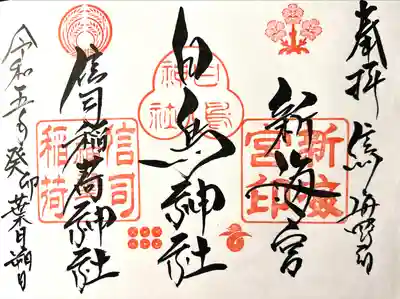 奉拝
新海宮
新海宮印
白鳥神社
白鳥神社
信司稲荷神社
信司稲荷
令和五年癸卯葉月朔日